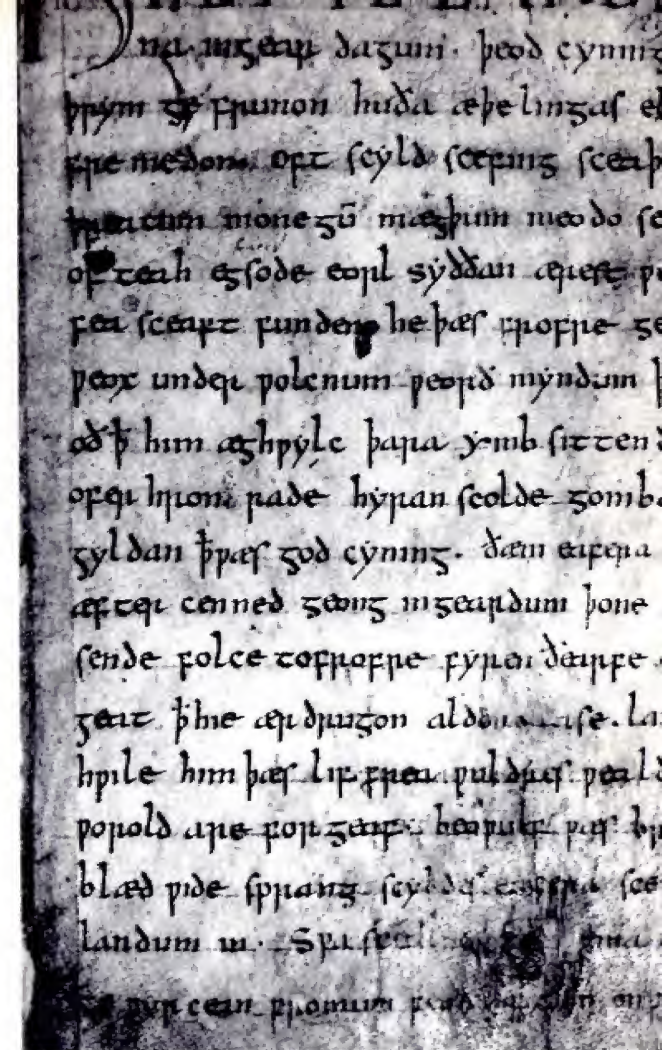 na ingear dagum. þeod cyning
þrym ge frunon huða æþelingas el
fremedon. oft scyld scefing sceaþ
þreatum monegū mægþum meodo se
of teah egsode eorl syððan ærest ƿe
fea sceaft funden he þæs frofre ge
ƿeox under ƿolcnum ƿeorð myndum þ
oð ꝥ him æghƿylc þara ymb sitten
ofer hron rade hyran scolde gomba
gyldan ꝥ ƿæs god cyning. ðæm eafera
æfter cenned geong ingeardum þone
sende folce tofrofre fyren ðearfe
geat ꝥ hie ær drugon aldor ase. la
hƿile him þæs lif frea ƿuldres ƿeald
ƿorold are for geaf. beoƿulf ƿæs br
blæd ƿide sprang scyldes eafera sce
landum in. Sƿa sceal
ƿyrcean fromum feoh